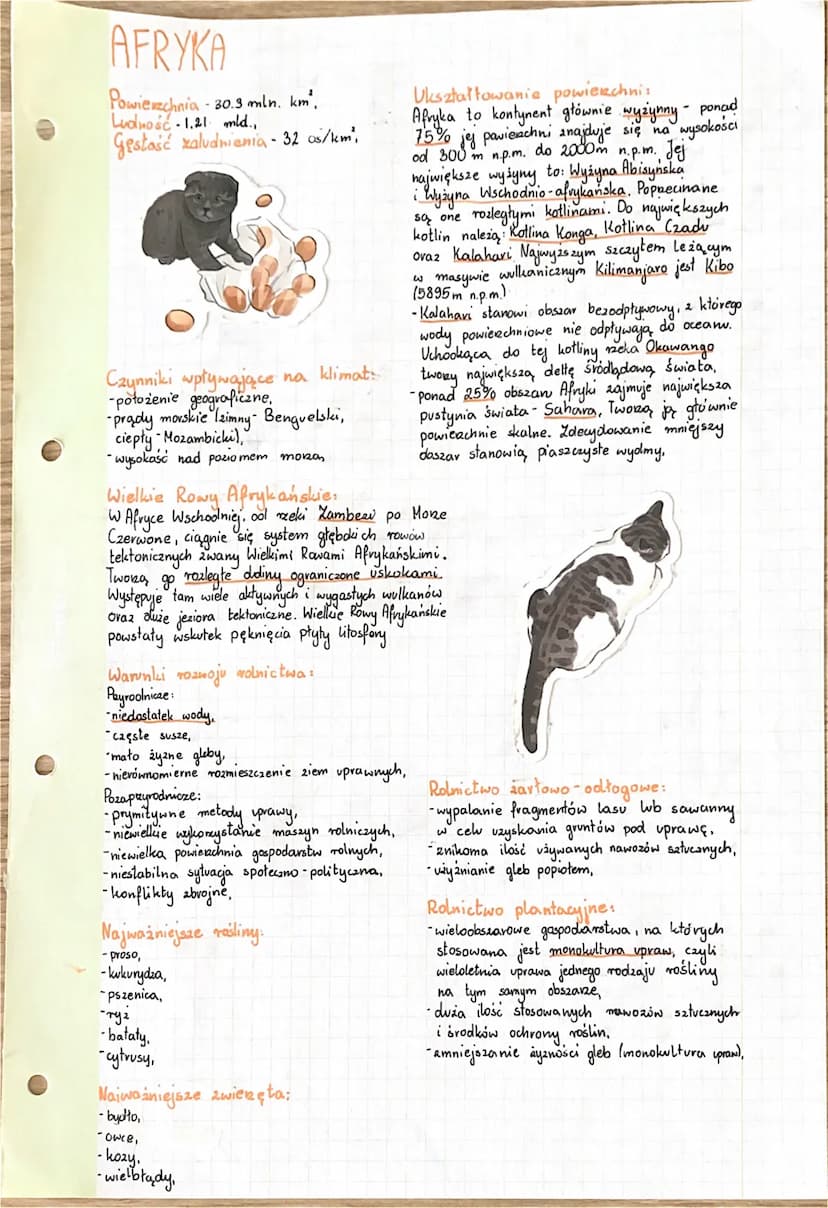 AFRYKA
Powierzchnia - 30.3 mln. km²,
Ludność - 1,21 mld.,
Gęstość zaludnienia - 32 os/km²,
Czynniki wpływające na klimat:
- położenie geograficzne,
- prądy morskie (zimny - Benguelski,
ciepły - Mozambicki),
- wysokość nad poziomem morza,
Wielkie Rowy Afrykańskie:
W Afryce Wschodniej, od rzeki Zambezi po Morze
Czerwone, ciągnie się system głębokich rowów
tektonicznych zwany Wielkimi Rowami Afrykańskimi.
Tworzą go rozległe doliny ograniczone uskokami.
Występuje tam wiele aktywnych i wygasłych wulkanów
oraz duże jeziora tektoniczne. Wielkie Rowy Afrykańskie
powstały wskutek pęknięcia płyty litosfery
Warunki rozwoju rolnictwa:
Przyrodnicze:
- niedostatek wody,
- częste susze,
- mało żyzne gleby,
- nierównomierne rozmieszczenie ziem uprawnych,
Pozaprzyrodnicze:
- prymitywne metody uprawy,
- niewielkie wykorzystanie maszyn rolniczych,
- niewielka powierzchnia gospodarstw rolnych,
- niestabilna sytuacja społeczno - polityczna,
- konflikty zbrojne,
Najważniejsze rośliny:
- proso,
- kukurydza,
- pszenica,
- ryż
- bataty,
- cytrusy,
Najważniejsze zwierzęta:
- bydło,
- owce,
- kozy,
- wielbłądy,
Ukształtowanie powierzchni:
Afryka to kontynent głównie wyżynny - ponad
75% jej powierzchni znajduje się na wysokości
od 300 m n.p.m. do 2000m n.p.m. Jej
największe wyżyny to: Wyżyna Abisyńska
i Wyżyna Wschodnio-afrykańska. Poprzecinane
są one rozległymi kotlinami. Do największych
kotlin należą: Kotlina Konga, Kotlina Czadu
oraz Kalahari Najwyższym szczytem leżącym
w masywie wulkanicznym Kilimanjaro jest Kibo
(5895 m n.p.m.)
- Kalahari stanowi obszar bezodpływowy, z którego
wody powierzchniowe nie odpływają do oceanu.
Uchodząca do tej kotliny rzeka Okawango
tworzy największą deltę śródlądową świata,
- ponad 25% obszaru Afryki zajmuje największa
pustynia świata - Sahara, Tworzą ją głównie
powierzchnie skalne. Zdecydowanie mniejszy
obszar stanowią piaszczyste wydmy,
Rolnictwo żarłowo - odłogowe:
- wypalanie fragmentów lasu lub sawanny
w celu uzyskania gruntów pod uprawę,
- znikoma ilość używanych nawozów sztucznych,
- użyźnianie gleb popiołem,
Rolnictwo plantacyjne:
- wieloobszarowe gospodarstwa, na których
stosowana jest monokultura upraw, czyli
wieloletnia uprawa jednego rodzaju rośliny
na tym samym obszarze,
- duża ilość stosowanych nawozów sztucznych
i środków ochrony roślin,
- zmniejszanie żyzności gleb (monokultura upraw),